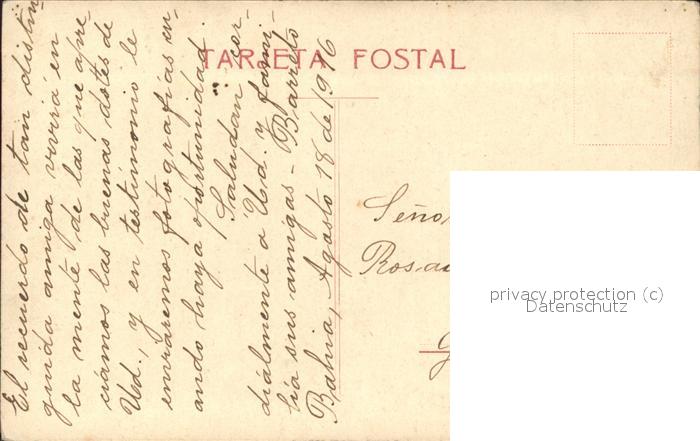 TARJETA POSTAL
El recuerdo de tan distin-
guida amiga vivirá en
la mente de las que apre-
ciamos las buenas dotes de
Ud., y en testimonio le
enviaremos fotografías cu-
ando haya oportunidad.
Saludan cor-
dialmente a Ud. y fami-
lia sus amigas - Barreto
Bahia, Agosto 18 de 1916
Seño
Rosau
privacy protection (c)
Datenschutz